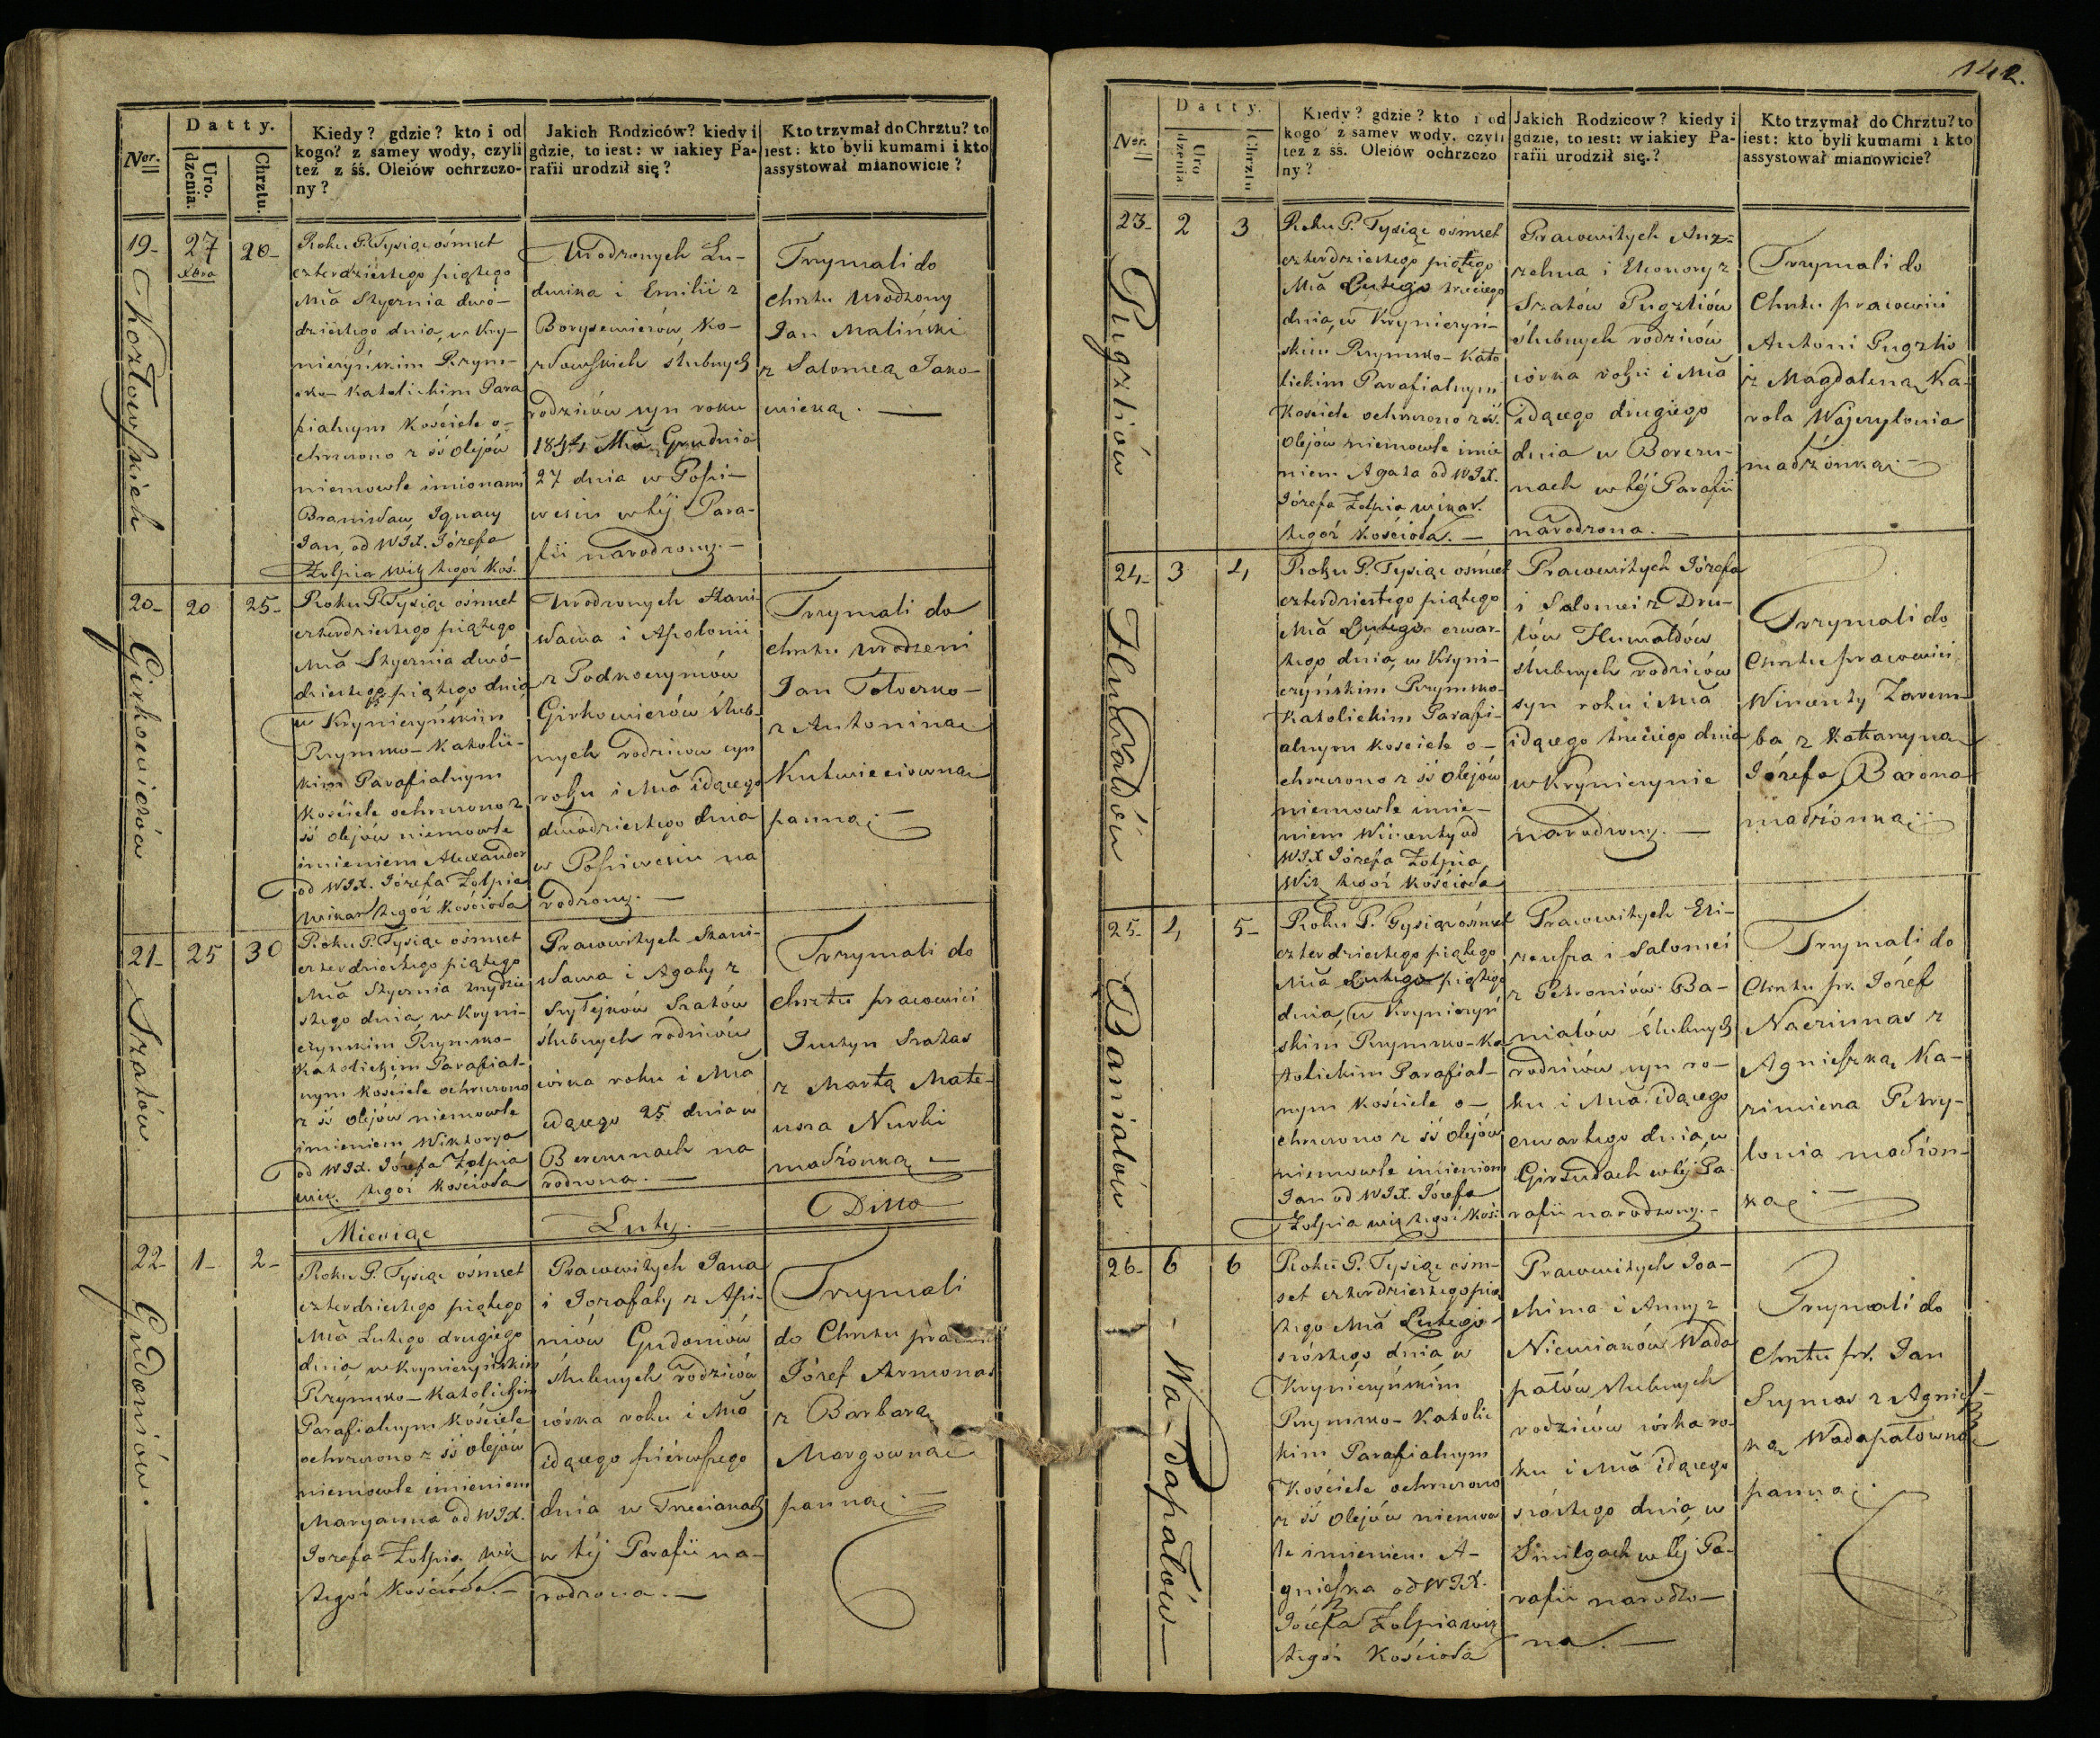 142.
Ner.
Datty.
Uro.
dzenia.
Chrztu.
Kiedy? gdzie? kto i od
kogo? z samey wody, czyli
też z śś. Oleiów ochrzczo-
ny?
Jakich Rodziców? kiedy i
gdzie, to iest: w iakiey Pa-
rafii urodził się?
Kto trzymał do Chrztu? to
iest: kto byli kumami i kto
assystował mianowicie?
19-
Kozłowskich
27
Xbra
20-
Roku P. Tysiąc ośmset
czterdziestego piątego
Mca Stycznia dwó-
dziestego dnia, w Kry-
niczyńskim Rzym-
sko-Katolickim Para
fialnym Kościele o-
chrzczono z śś olejów
niemowle imionami
Bronisław, Ignacy
Jan, od WJX. Józefa
Żołpia wik tegoż Koś.
Urodzonych Lu-
dwika i Emilii z
Borysewiczów Ko-
złowskich ślubnych
rodziców syn roku
1844 Mca Grudnia
27 dnia w Pośi-
weciu w téj Para-
fii narodzony.-
Trzymali do
chrztu Urodzony
Jan Maliński
z Salomeą Jano-
wiczką.
20-
Girkowiczów
20
25-
Roku P. Tysiąc ośmset
czterdziestego piątego
Mca Stycznia dwó-
dziestego piątego dnia
w Kryniczyńskim
Rzymsko-Katolic-
kim Parafialnym
Kościele ochrzczono z
śś olejów niemowle
imieniem Alexander
od WJX. Józefa Żołpia
wikar tegoż Kościoła
Urodzonych Stani-
sława i Apolonii
z Podkoerymów
Girkowiczów ślub-
nych rodziców syn
roku i Mca idącego
dwódziestego dnia
w Pośiweciu na
rodzony.-
Trzymali do
chrztu Urodzeni
Jan Totoerko-
z Antoniną
Kutwieciówną
panną.-
21-
Szatów
25
30
Roku P. Tysiąc ośmset
czterdziestego piątego
Mca Stycznia trzydzie
stego dnia, w Kryni-
czyńskim Rzymsko-
Katolickim Parafial-
nym Kościele ochrzczono
z śś olejów niemowle
imieniem Wiktorya
od WJX. Józefa Żołpia
wik. tegoż Kościoła
Pracowitych Stani-
sława i Agaty z
Szyłejków Szatów
ślubnych rodziców
córka roku i Mca
idącego 25 dnia w
Berżunach na
rodzona.-
Trzymali do
chrztu pracowici
Justyn Szatas
z Martą Mate-
usza Nurki
małżonką-
Miesiąc
Luty.-
Ditto
22-
Gudoniów.
1-
2-
Roku P. Tysiąc ośmset
czterdziestego piątego
Mca Lutego drugiego
dnia w Kryniczyńskim
Rzymsko-Katolickim
Parafialnym Kościele
ochrzczono z śś olejów
niemowle imieniem
Maryanna od WJX.
Józefa Żołpia wik
tegoż Kościoła.-
Pracowitych Jana
i Jozafaty z Api-
niów Gudoniów
ślubnych rodziców
córka roku i Mca
idącego pierwszego
dnia w Trzecianach
w téj Parafii na-
rodzona.-
Trzymali
do Chrztu pracowici
Józef Armonas
z Barbarą
Margowną
panną.-
Ner.
Datty.
Uro
dzenia
Chrztu
Kiedy? gdzie? kto i od
kogo z samey wody, czyli
też z śś. Oleiów ochrzczo
ny?
Jakich Rodzicow? kiedy i
gdzie, to iest: w iakiey Pa-
rafii urodził się.?
Kto trzymał do Chrztu? to
iest: kto byli kumami i kto
assystował mianowicie?
23-
Pugzliów
2
3
Roku P. Tysiąc ośmset
czterdziestego piątego
Mca Lutego trzeciego
dnia, w Kryniczyń-
skim Rzymsko-Kato
lickim Parafialnym
Kościele ochrzczono z śś.
Olejów niemowle imie
niem Agata od WJX.
Józefa Żołpia wikar.
tegoż Kościoła.-
Pracowitych Anz-
zelma i Eleonory z
Szatów Pugzliów
ślubnych rodziców
córka roku i Mca
idącego drugiego
dnia w Borczu-
nach w téj Parafii
narodzona.-
Trzymali do
Chrztu pracowici
Antoni Pugzlis
z Magdaleną Ka-
rola Wajcrytonia
małżonką.-
24-
Humałdów
3
4
Roku P. Tysiąc ośmset
czterdziestego piątego
Mca Lutego czwar-
tego dnia, w Kryni-
czyńskim Rzymsko-
Katolickim Parafi-
alnym kosciele o-
chrzczono z śś olejów
niemowle imie-
niem Wincenty od
WJX Józefa Żołpia
Wik tegoż Kościoła
Pracowitych Józefa
i Salomei z Dru-
lów Humałdów
ślubnych rodziców
syn roku i Mca
idącego trzeciego dnia
w Kryniczynie
narodzony.-
Trzymali do
Chrztu pracowici
Wincenty Zarem-
ba z Katarzyną
Józefa Baxona
małżonką.-
25-
Baniałów
4
5-
Roku P. Tysiąc ośmset
czterdziestego piątego
Mca Lutego piątego
dnia, w Kryniczyń
skim Rzymsko-Ka
tolickim Parafial-
nym Kościele o-
chrzczono z śś olejów
niemowle imieniem
Jan od WJX. Józefa
Żołpia wik tegoż Koś.
Pracowitych Eli-
zeusza i Salomei
z Petroniów Ba-
niałów ślubnych
rodziców syn ro-
ku i Mca idącego
czwartego dnia, w
Girżudach w téj Pa
rafii narodzony.-
Trzymali do
Chrztu pr. Józef
Naczunas z
Agnieszką Ka-
zimierza Petry-
lonia małżon-
ką.-
26-
Wadapałów-
6
6
Roku P. Tysiąc ośm-
set czterdziestego pią
tego Mca Lutego-
szóstego dnia, w
Kryniczyńskim
Rzymsko-Katolic
kim Parafialnym
Kościele ochrzczono
z śś olejów niemow
le imieniem A-
gnieszka od WJX.
Józefa Żołpia wik
tegoż Kościoła
Pracowitych Joa-
chima i Anny z
Niewiaków Wada
pałów ślubnych
rodziców córka ro-
ku i Mca idącego
szóstego dnia, w
Smilgach w téj Pa-
rafii narodzo-
na.-
Trzymali do
Chrztu pr. Jan
Szymas z Agniesz-
ką Wadapałowną
panną.